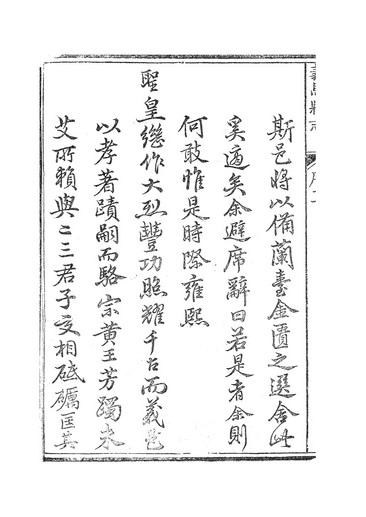 義烏縣志
斯邑將以備蘭臺金匱之選舍此
奚適矣余避席辭曰若是者余則
何敢惟是時際雍熙
聖皇繼作大烈豐功照耀千古而義邑
以孝著蹟嗣而駱宗黄王芳躅未
艾所賴與二三君子交相砥礪匡其